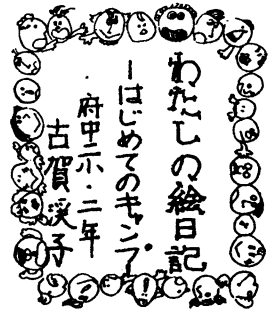 わたしの絵日記
―はじめてのキャンプ―
・府中六小・二年
古賀渓子